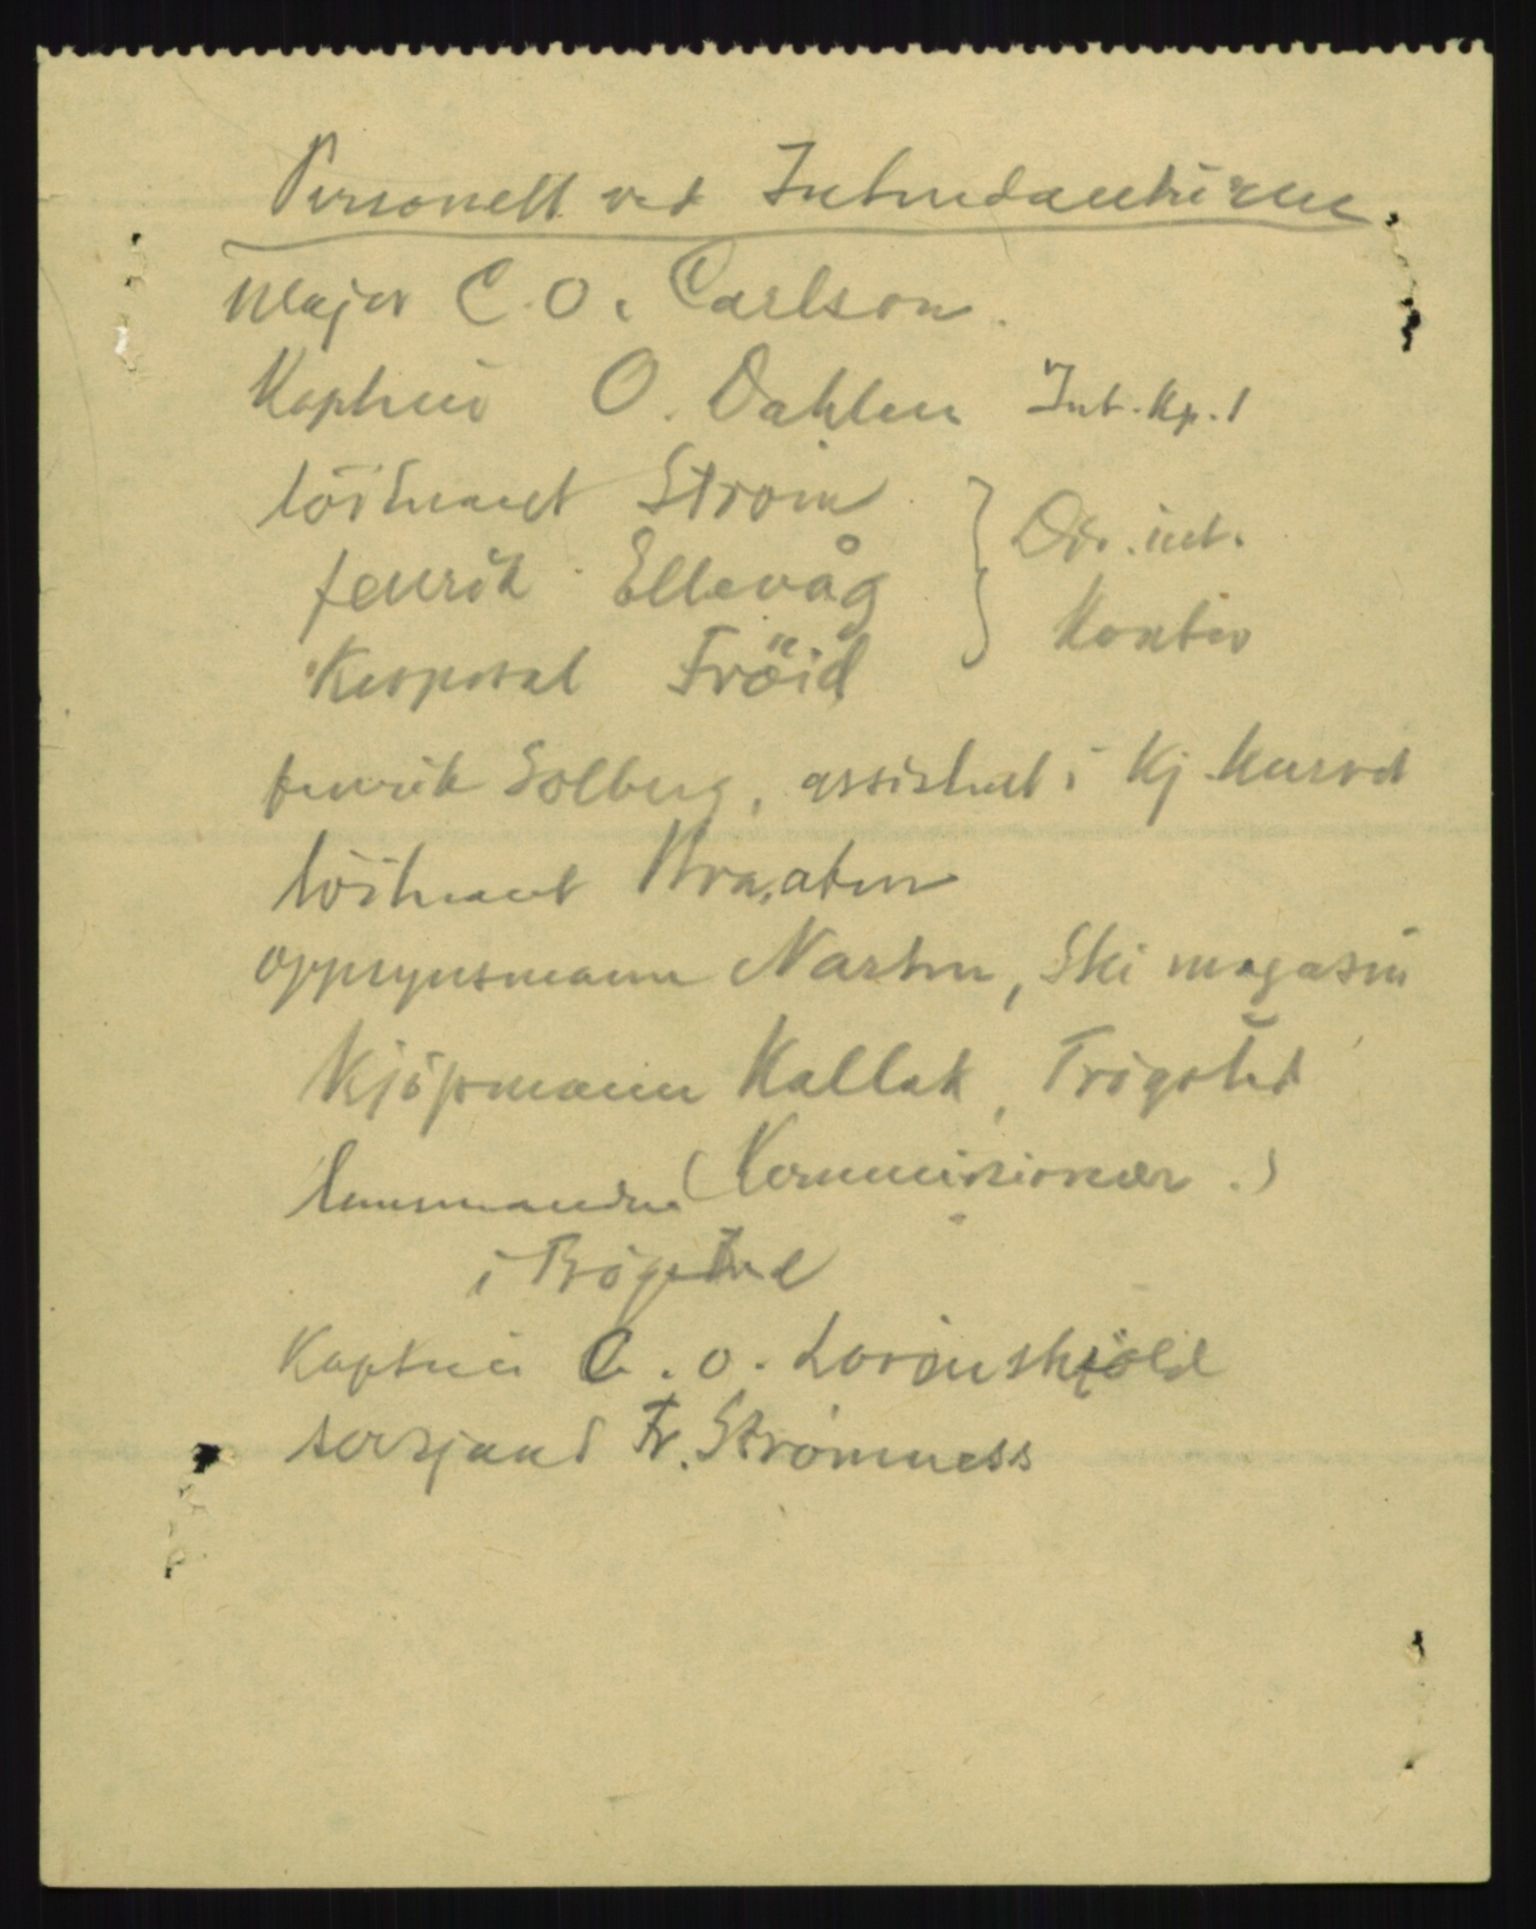 Personell ved Intendanturen.
Major C. O. Carlson.
Kaptein O. Dahlen Int. kp. 1
löitnant Strøm
fenrik Ellevåg
Korporal Fröid
} Div. int.
Kontor
fenrik Solberg, assistent i Kj.
löitnant Braaten
oppsynsmann Narten, Ski magasin
Kjöpmann Kallak, Trögsted
(Kommisionær.)
lensmanden
i Trögsted
Kaptein C. O. Lövenskjöld
sersjant Fr. Strömness